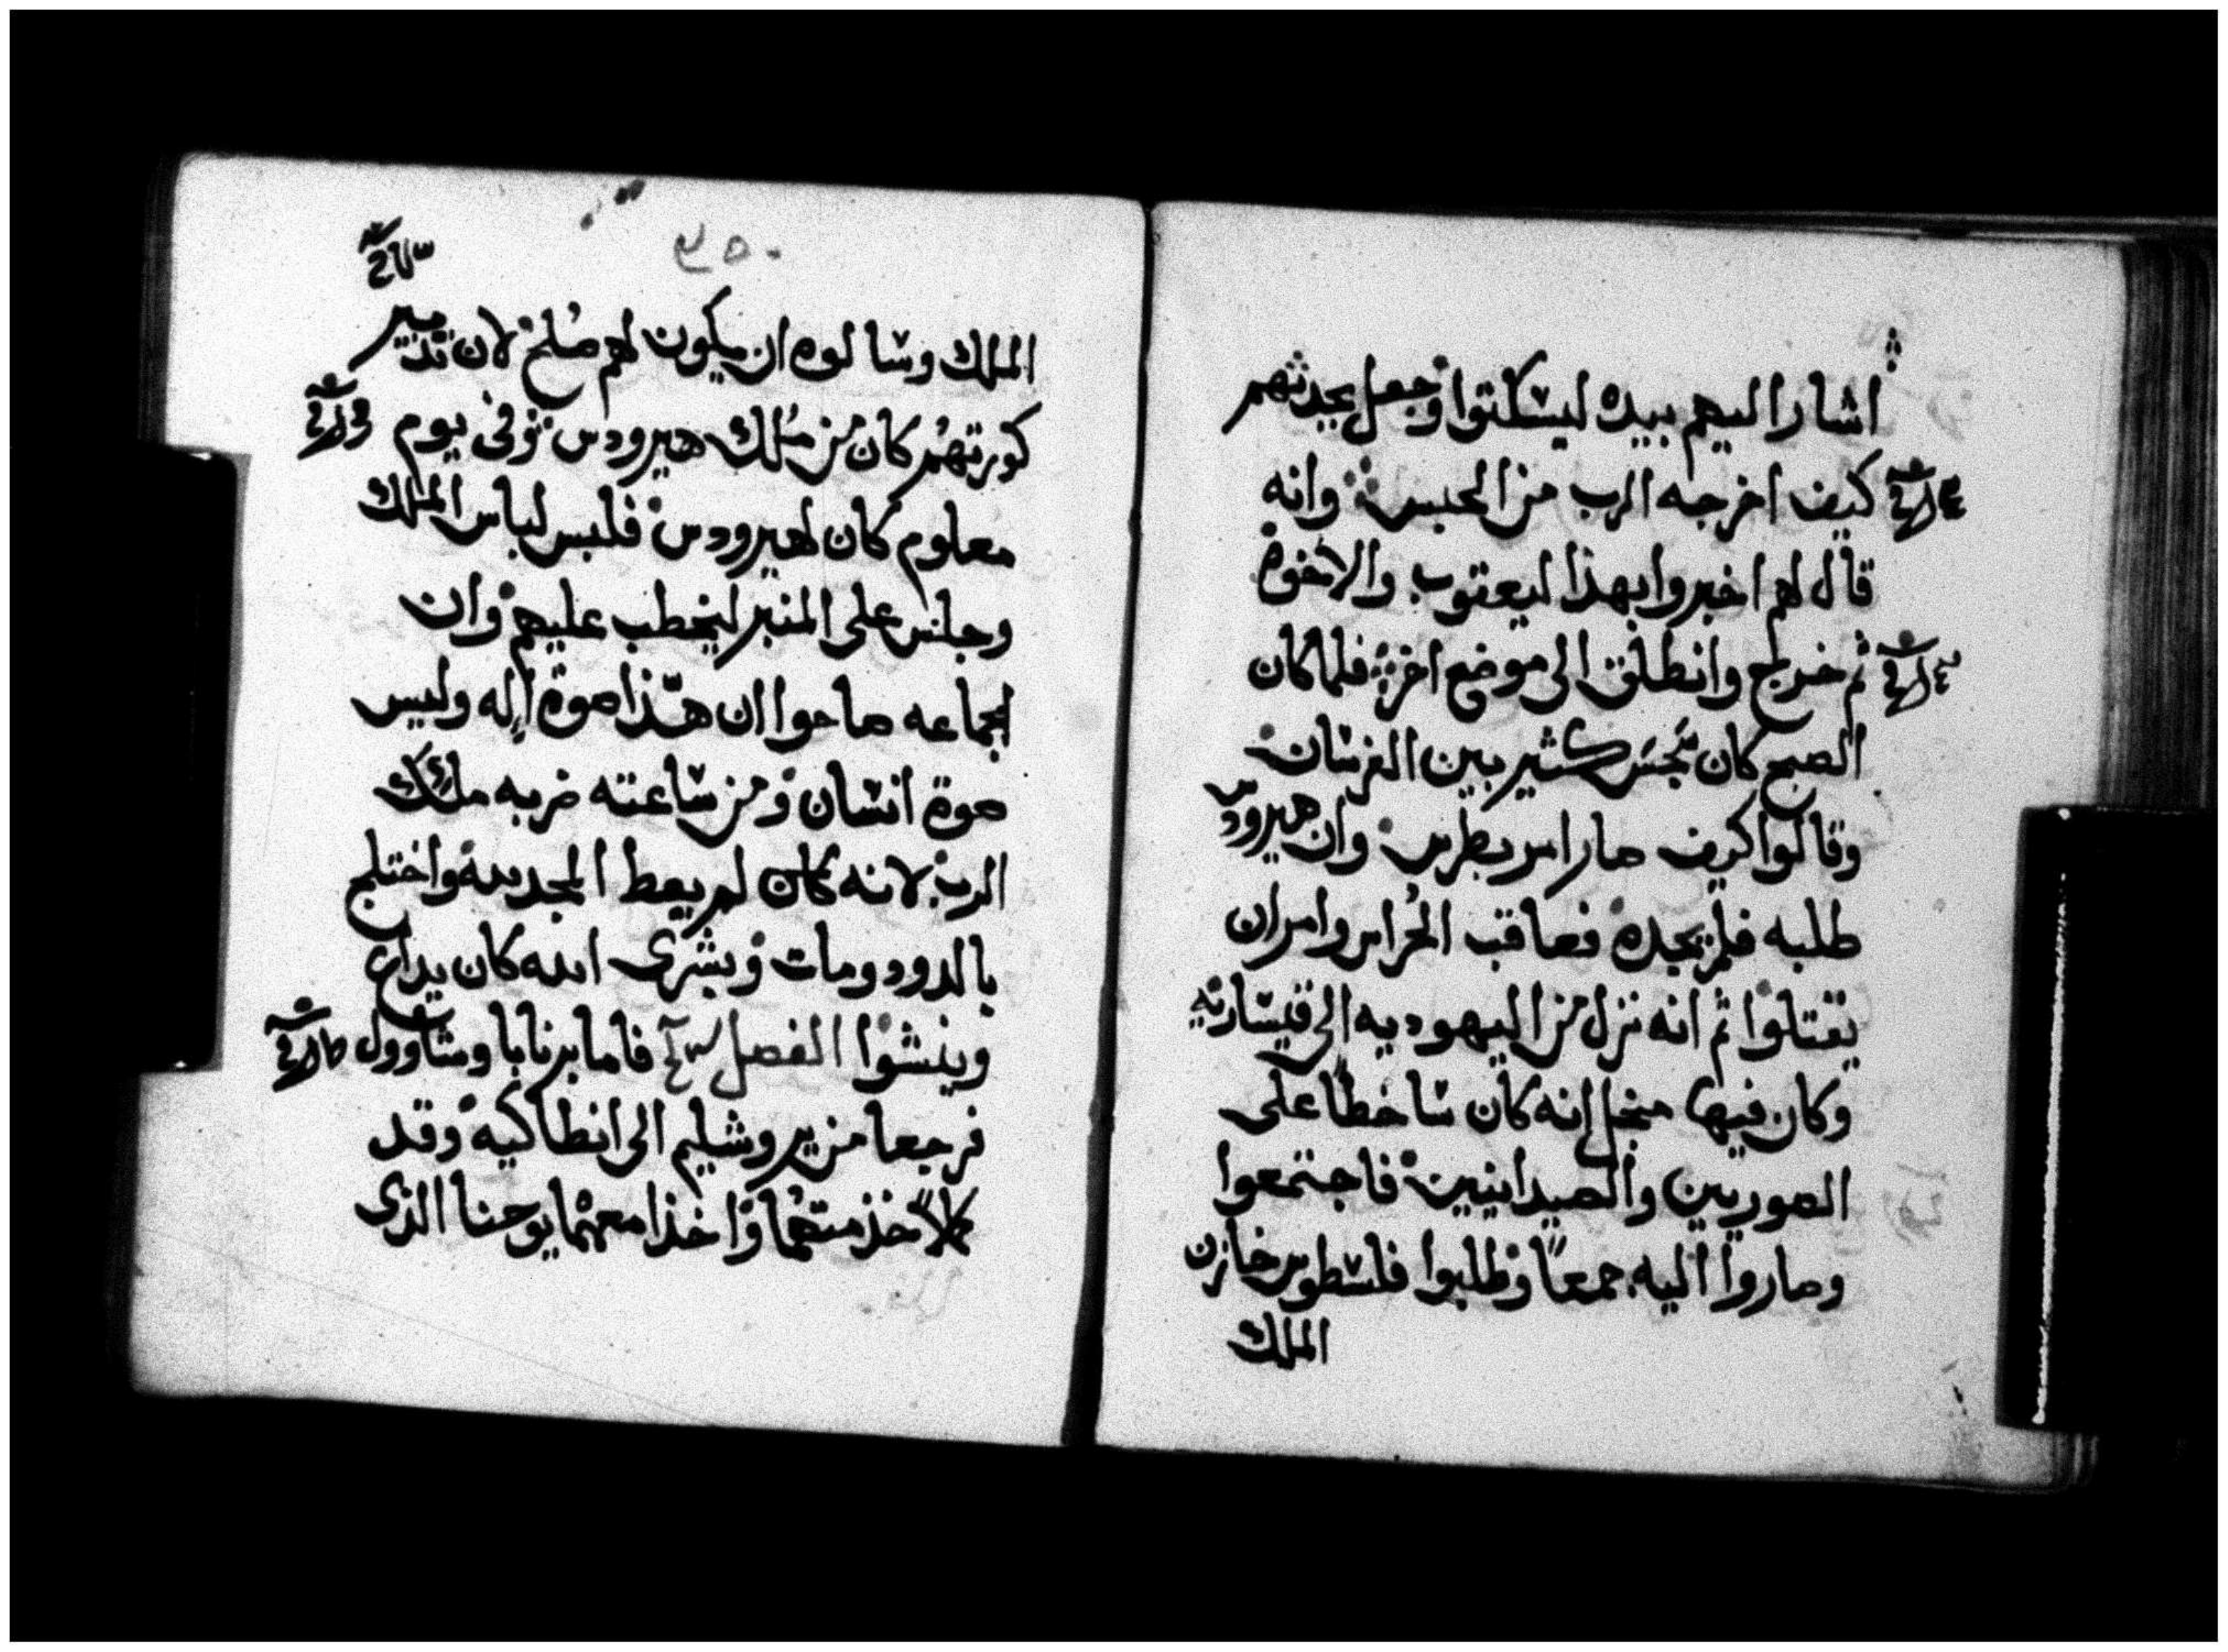 اشار اليهم بيده ليسكتوا وجعل يحدثهم
كيف اخرجه الرب من الحبس وانه
قال لهم اخبروا بهذا ليعقوب والاخوة
ثم خرج وانطلق الى موضع اخر فلما كان
الصبح كان تجسس كثير بين الفرسان
وقالوا كيف صار امر بطرس وان هيرودس
طلبه فلم يجده فعاقب الحراس وامر ان
يقتلوا ثم انه نزل من اليهوديه الى قيساريه
وكان فيها من اجل انه كان ساخطا على
الصوريين والصيدانيين فاجتمعوا
وصاروا اليه جمعاً وطلبوا فلسطوس خازن
الملك
٢٥٠
الملك وسالوه ان يكون لهم صلح لان تدبير
كورتهم كان من ملك هيرودس وفى يوم
معلوم كان لهيرودس فلبس لباس الملك
وجلس على المنبر ليخطب عليهم وان
الجماعه صاحوا ان هذا صوة اله وليس
صوة انسان ومن ساعته ضربه ملك
الرب لانه كان لم يعط المجد لله واختلج
بالدود ومات وبشرى الله كان يداع
وينشوا الفصل فاما برنابا وشاوول
فرجعا من يروشليم الى انطاكيه وقد
كملا خذمتهما واخذا معهما يوحنا الذى